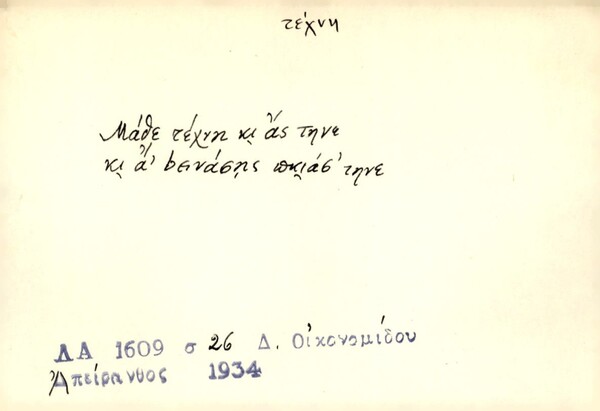 τέχνη
Μάθε τέχνη κι̯ ἄς τηνε
κι̯ ἄ' bεινάσῃς πκι̯άσ' τηνε
ΛΑ 1609 σ 26 Δ. Οἰκονομίδου
Ἀπείρανθος 1934